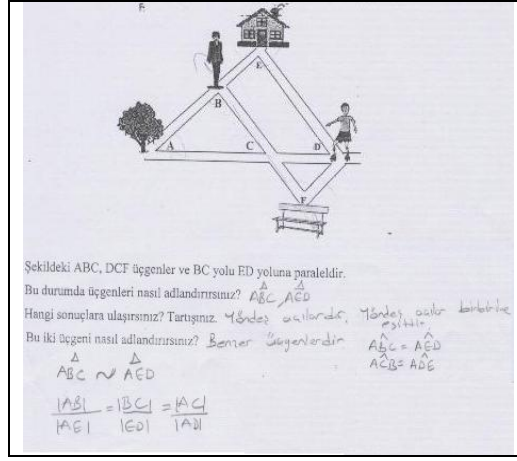 F.
E
B
A
C
D
F
Şekildeki ABC, DCF üçgenler ve BC yolu ED yoluna paraleldir.
Bu durumda üçgenleri nasıl adlandırırsınız? ABC, AED
Hangi sonuçlara ulaşırsınız? Tartışınız. Yöndeş açılardır. Yöndeş açılar birbirine eşittir.
Bu iki üçgeni nasıl adlandırırsınız? Benzer üçgenlerdir
ABC = AED
ACB = ADE
ABC ~ AED
|AB| / |AE| = |BC| / |ED| = |AC| / |AD|